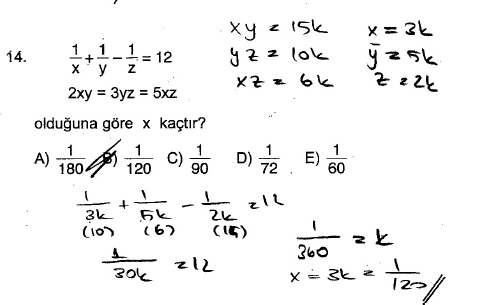 14. 1/x + 1/y - 1/z = 12
2xy = 3yz = 5xz
olduğuna göre x kaçtır?
A) 1/180 B) 1/120 C) 1/90 D) 1/72 E) 1/60
xy = 15k
yz = 10k
xz = 6k
x = 3k
y = 5k
z = 2k
1/3k + 1/5k - 1/2k = 12
(10) (6) (15)
1/30k = 12
1/360 = k
x = 3k = 1/120